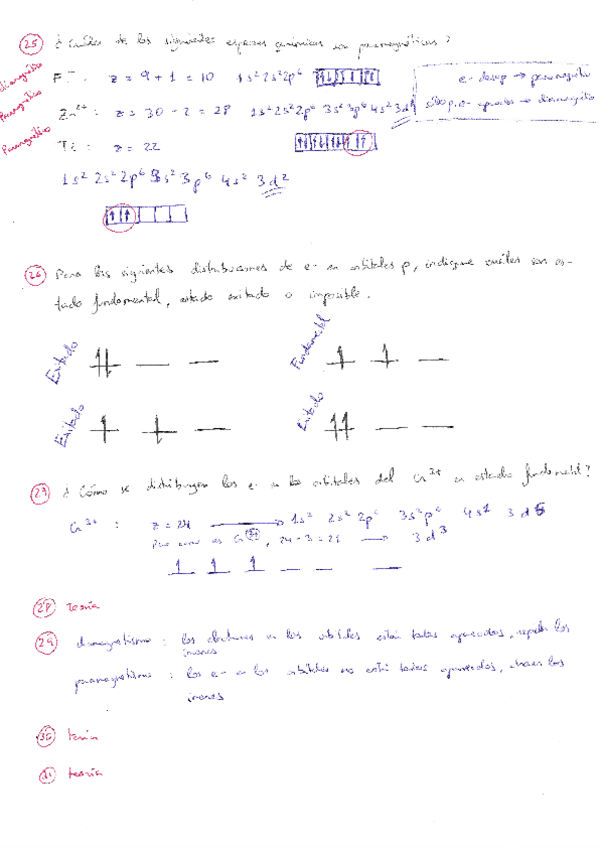 25 ¿Cuáles de las siguientes especies químicas son paramagnéticas?
diamagnético F⁻: z = 9 + 1 = 10 1s² 2s² 2p⁶
e⁻ desap → paramagnético
Paramagnético Zn²⁺: z = 30 - 2 = 28 1s² 2s² 2p⁶ 3s² 3p⁶ 4s² 3d⁸
sólo e⁻ apareados → diamagnético
Paramagnético Ti: z = 22
1s² 2s² 2p⁶ 3s² 3p⁶ 4s² 3d²
26 Para las siguientes distribuciones de e⁻ en orbitales p, indique cuáles son es-
tado fundamental, estado exitado o imposible.
Exitado
Fundamental
Exitado
Exitado
27 ¿Cómo se distribuyen los e⁻ en los orbitales del Cr³⁺ en estado fundamental?
Cr³⁺: z = 24 → 1s² 2s² 2p⁶ 3s² 3p⁶ 4s¹ 3d⁵
Pero como es Cr³⁺, 24 - 3 = 21 → 3d³
28 Teoría
29 diamagnetismo: los electrones en los orbitales están todos apareados, repelen los
imanes
paramagnetismo: los e⁻ en los orbitales no están todos apareados, atraen los
imanes
30 teoría
31 teoría